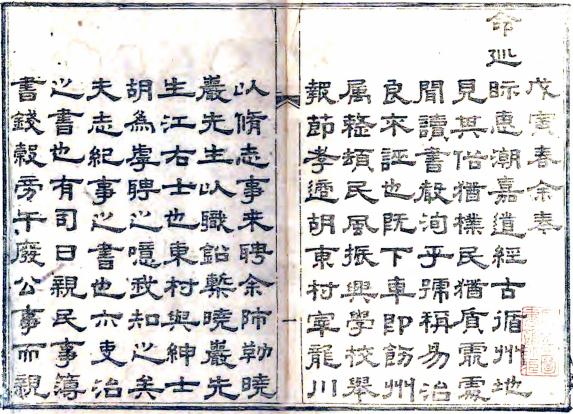 戊寅春余奉
命巡眎惠潮嘉道經古循州地
見其俗猶樸民猶質處處
聞讀書聲洵乎號稱易治
良不誣也既下車即飭州
属整頓民風振興學校舉
報節孝適胡東村宰龍川
以脩志事来聘余師勒曉
巖先生以職鉛槧曉巖先
生江右士也東村與紳士
胡為虖聘之噫我知之矣
夫志紀事之書也亦吏治
之書也有司日親民事簿
書錢穀旁午廢公事而親